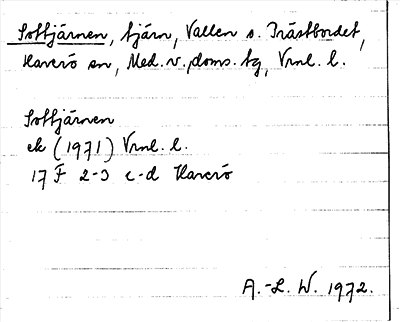 Sottjärnen, tjärn, Vallen s. Trästbordet,
Haverö sn, Med.v. doms. tg, Vrnl. l.
Sottjärnen
ek (1971) Vrnl. l.
17 F 2-3 c-d Haverö
A.-L. W. 1972.